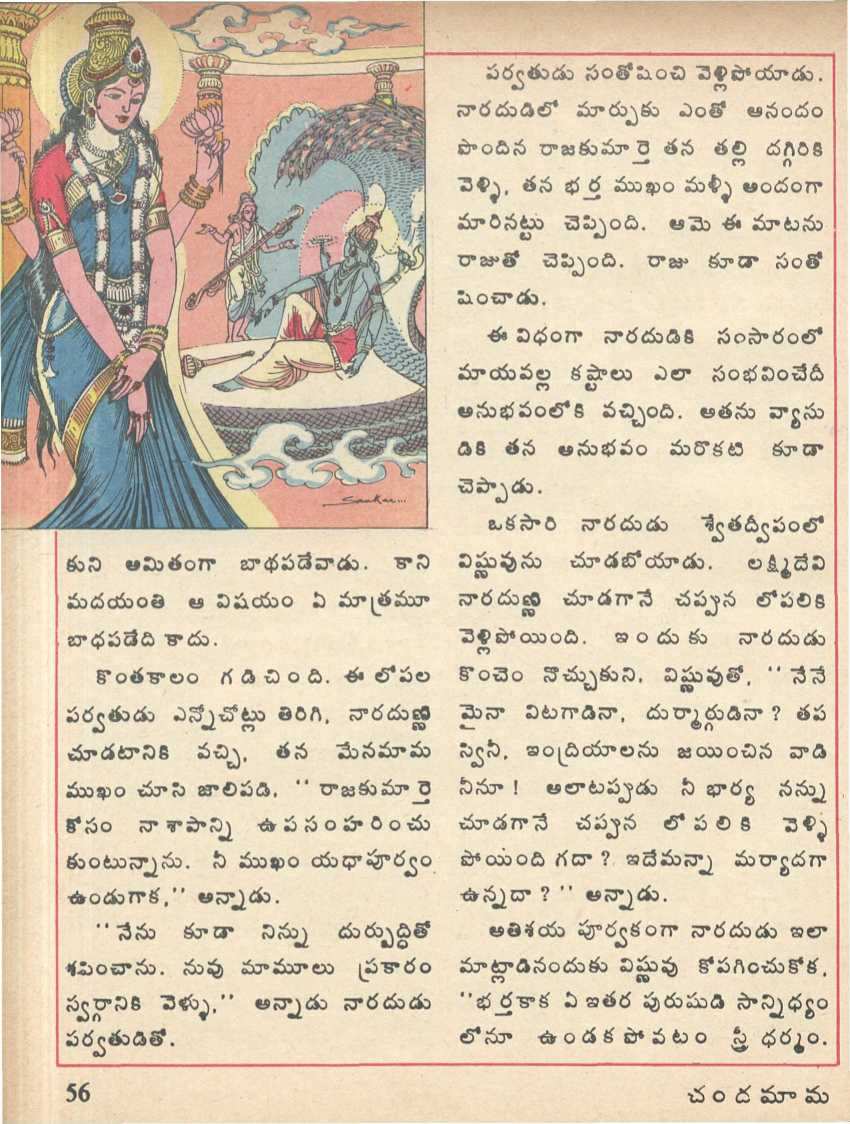 Sankar...
కుని అమితంగా బాధపడేవాడు. కాని
మదయంతి ఆ విషయం ఏ మాత్రమూ
బాధపడేది కాదు.
కొంతకాలం గడిచింది. ఈ లోపల
పర్వతుడు ఎన్నోచోట్లు తిరిగి, నారదుణ్ణి
చూడటానికి వచ్చి, తన మేనమామ
ముఖం చూసి జాలిపడి, ''రాజకుమార్తె
కోసం నా శాపాన్ని ఉపసంహరించు
కుంటున్నాను. నీ ముఖం యధాపూర్వం
ఉండుగాక,'' అన్నాడు.
''నేను కూడా నిన్ను దుర్బుద్ధితో
శపించాను. నువు మామూలు ప్రకారం
స్వర్గానికి వెళ్ళు,'' అన్నాడు నారదుడు
పర్వతుడితో.
పర్వతుడు సంతోషించి వెళ్లిపోయాడు.
నారదుడిలో మార్పుకు ఎంతో ఆనందం
పొందిన రాజకుమార్తె తన తల్లి దగ్గిరికి
వెళ్ళి, తన భర్త ముఖం మళ్ళీ అందంగా
మారినట్టు చెప్పింది. ఆమె ఈ మాటను
రాజుతో చెప్పింది. రాజు కూడా సంతో
షించాడు.
ఈ విధంగా నారదుడికి సంసారంలో
మాయవల్ల కష్టాలు ఎలా సంభవించేదీ
అనుభవంలోకి వచ్చింది. అతను వ్యాసు
డికి తన అనుభవం మరొకటి కూడా
చెప్పాడు.
ఒకసారి నారదుడు శ్వేతద్వీపంలో
విష్ణువును చూడబోయాడు. లక్ష్మిదేవి
నారదుణ్ణి చూడగానే చప్పున లోపలికి
వెళ్లిపోయింది. ఇందుకు నారదుడు
కొంచెం నొచ్చుకుని, విష్ణువుతో, ''నేనే
మైనా విటగాడినా, దుర్మార్గుడినా? తప
స్వినీ, ఇంద్రియాలను జయించిన వాడి
నీనూ! అలాటప్పుడు నీ భార్య నన్ను
చూడగానే చప్పున లోపలికి వెళ్ళి
పోయింది గదా? ఇదేమన్నా మర్యాదగా
ఉన్నదా?'' అన్నాడు.
అతిశయ పూర్వకంగా నారదుడు ఇలా
మాట్లాడినందుకు విష్ణువు కోపగించుకోక,
''భర్తకాక ఏ ఇతర పురుషుడి సాన్నిధ్యం
లోనూ ఉండకపోవటం స్త్రీ ధర్మం.
56
చందమామ